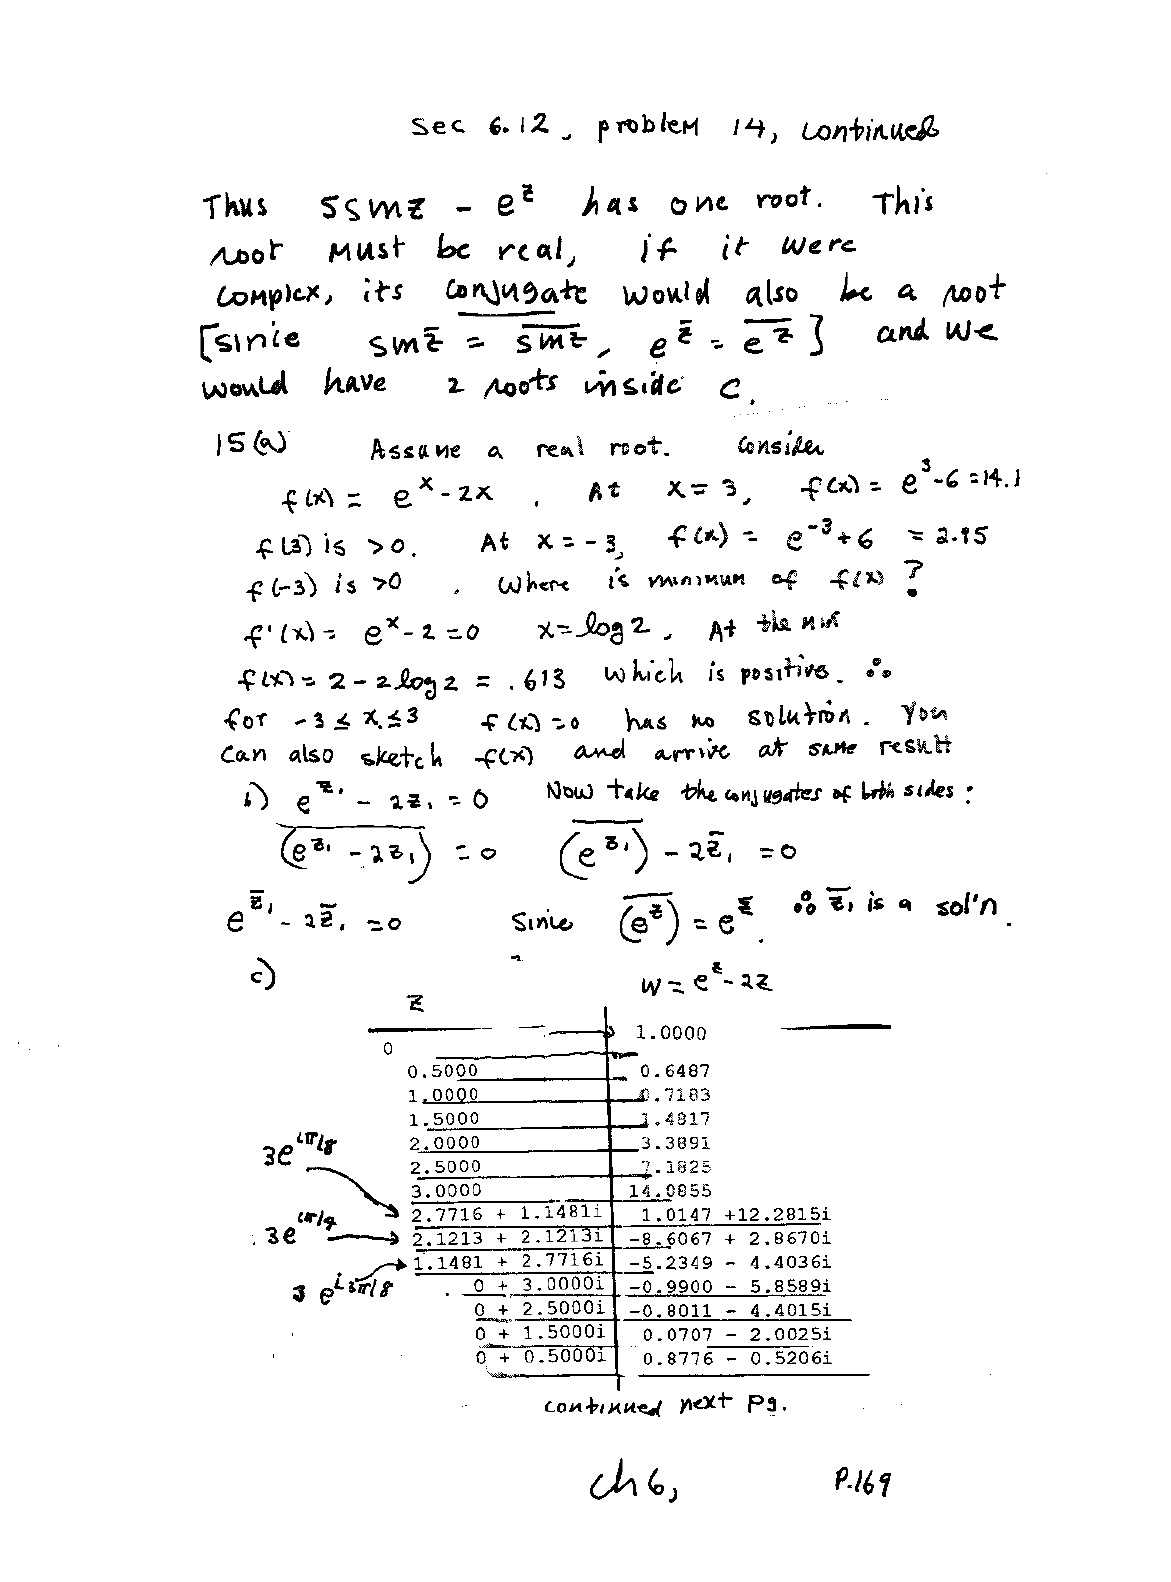 Sec 6.12, problem 14, continued
Thus 5 sin z - e^z has one root. This
root must be real, if it were
complex, its conjugate would also be a root
[since sin z̄ = \overline{sin z}, e^z̄ = \overline{e^z}] and we
would have 2 roots inside C.
15(a) Assume a real root. Consider
f(x) = e^x - 2x. At x = 3, f(x) = e^3 - 6 = 14.1
f(3) is >0. At x = -3, f(x) = e^-3 + 6 = 2.95
f(-3) is >0. Where is minimum of f(x)?
f'(x) = e^x - 2 = 0 x = log 2. At the min
f(x) = 2 - 2 log 2 = .613 which is positive. ∴
for -3 ≤ x ≤ 3 f(x) = 0 has no solution. You
can also sketch f(x) and arrive at same result
b) e^z₁ - 2z₁ = 0 Now take the conjugates of both sides:
\overline{(e^z₁ - 2z₁)} = 0 \overline{(e^z₁)} - 2z̄₁ = 0
e^z̄₁ - 2z̄₁ = 0 Since \overline{(e^z)} = e^z̄. ∴ z̄₁ is a sol'n.
c) w = e^z - 2z
z
0 1.0000
0.5000 0.6487
1.0000 0.7183
1.5000 1.4817
2.0000 3.3891
2.5000 7.1825
3.0000 14.0855
3e^iπ/8 2.7716 + 1.1481i 1.0147 +12.2815i
3e^iπ/4 2.1213 + 2.1213i -8.6067 + 2.8670i
3 e^i3π/8 1.1481 + 2.7716i -5.2349 - 4.4036i
0 + 3.0000i -0.9900 - 5.8589i
0 + 2.5000i -0.8011 - 4.4015i
0 + 1.5000i 0.0707 - 2.0025i
0 + 0.5000i 0.8776 - 0.5206i
continued next pg.
ch 6, P.169